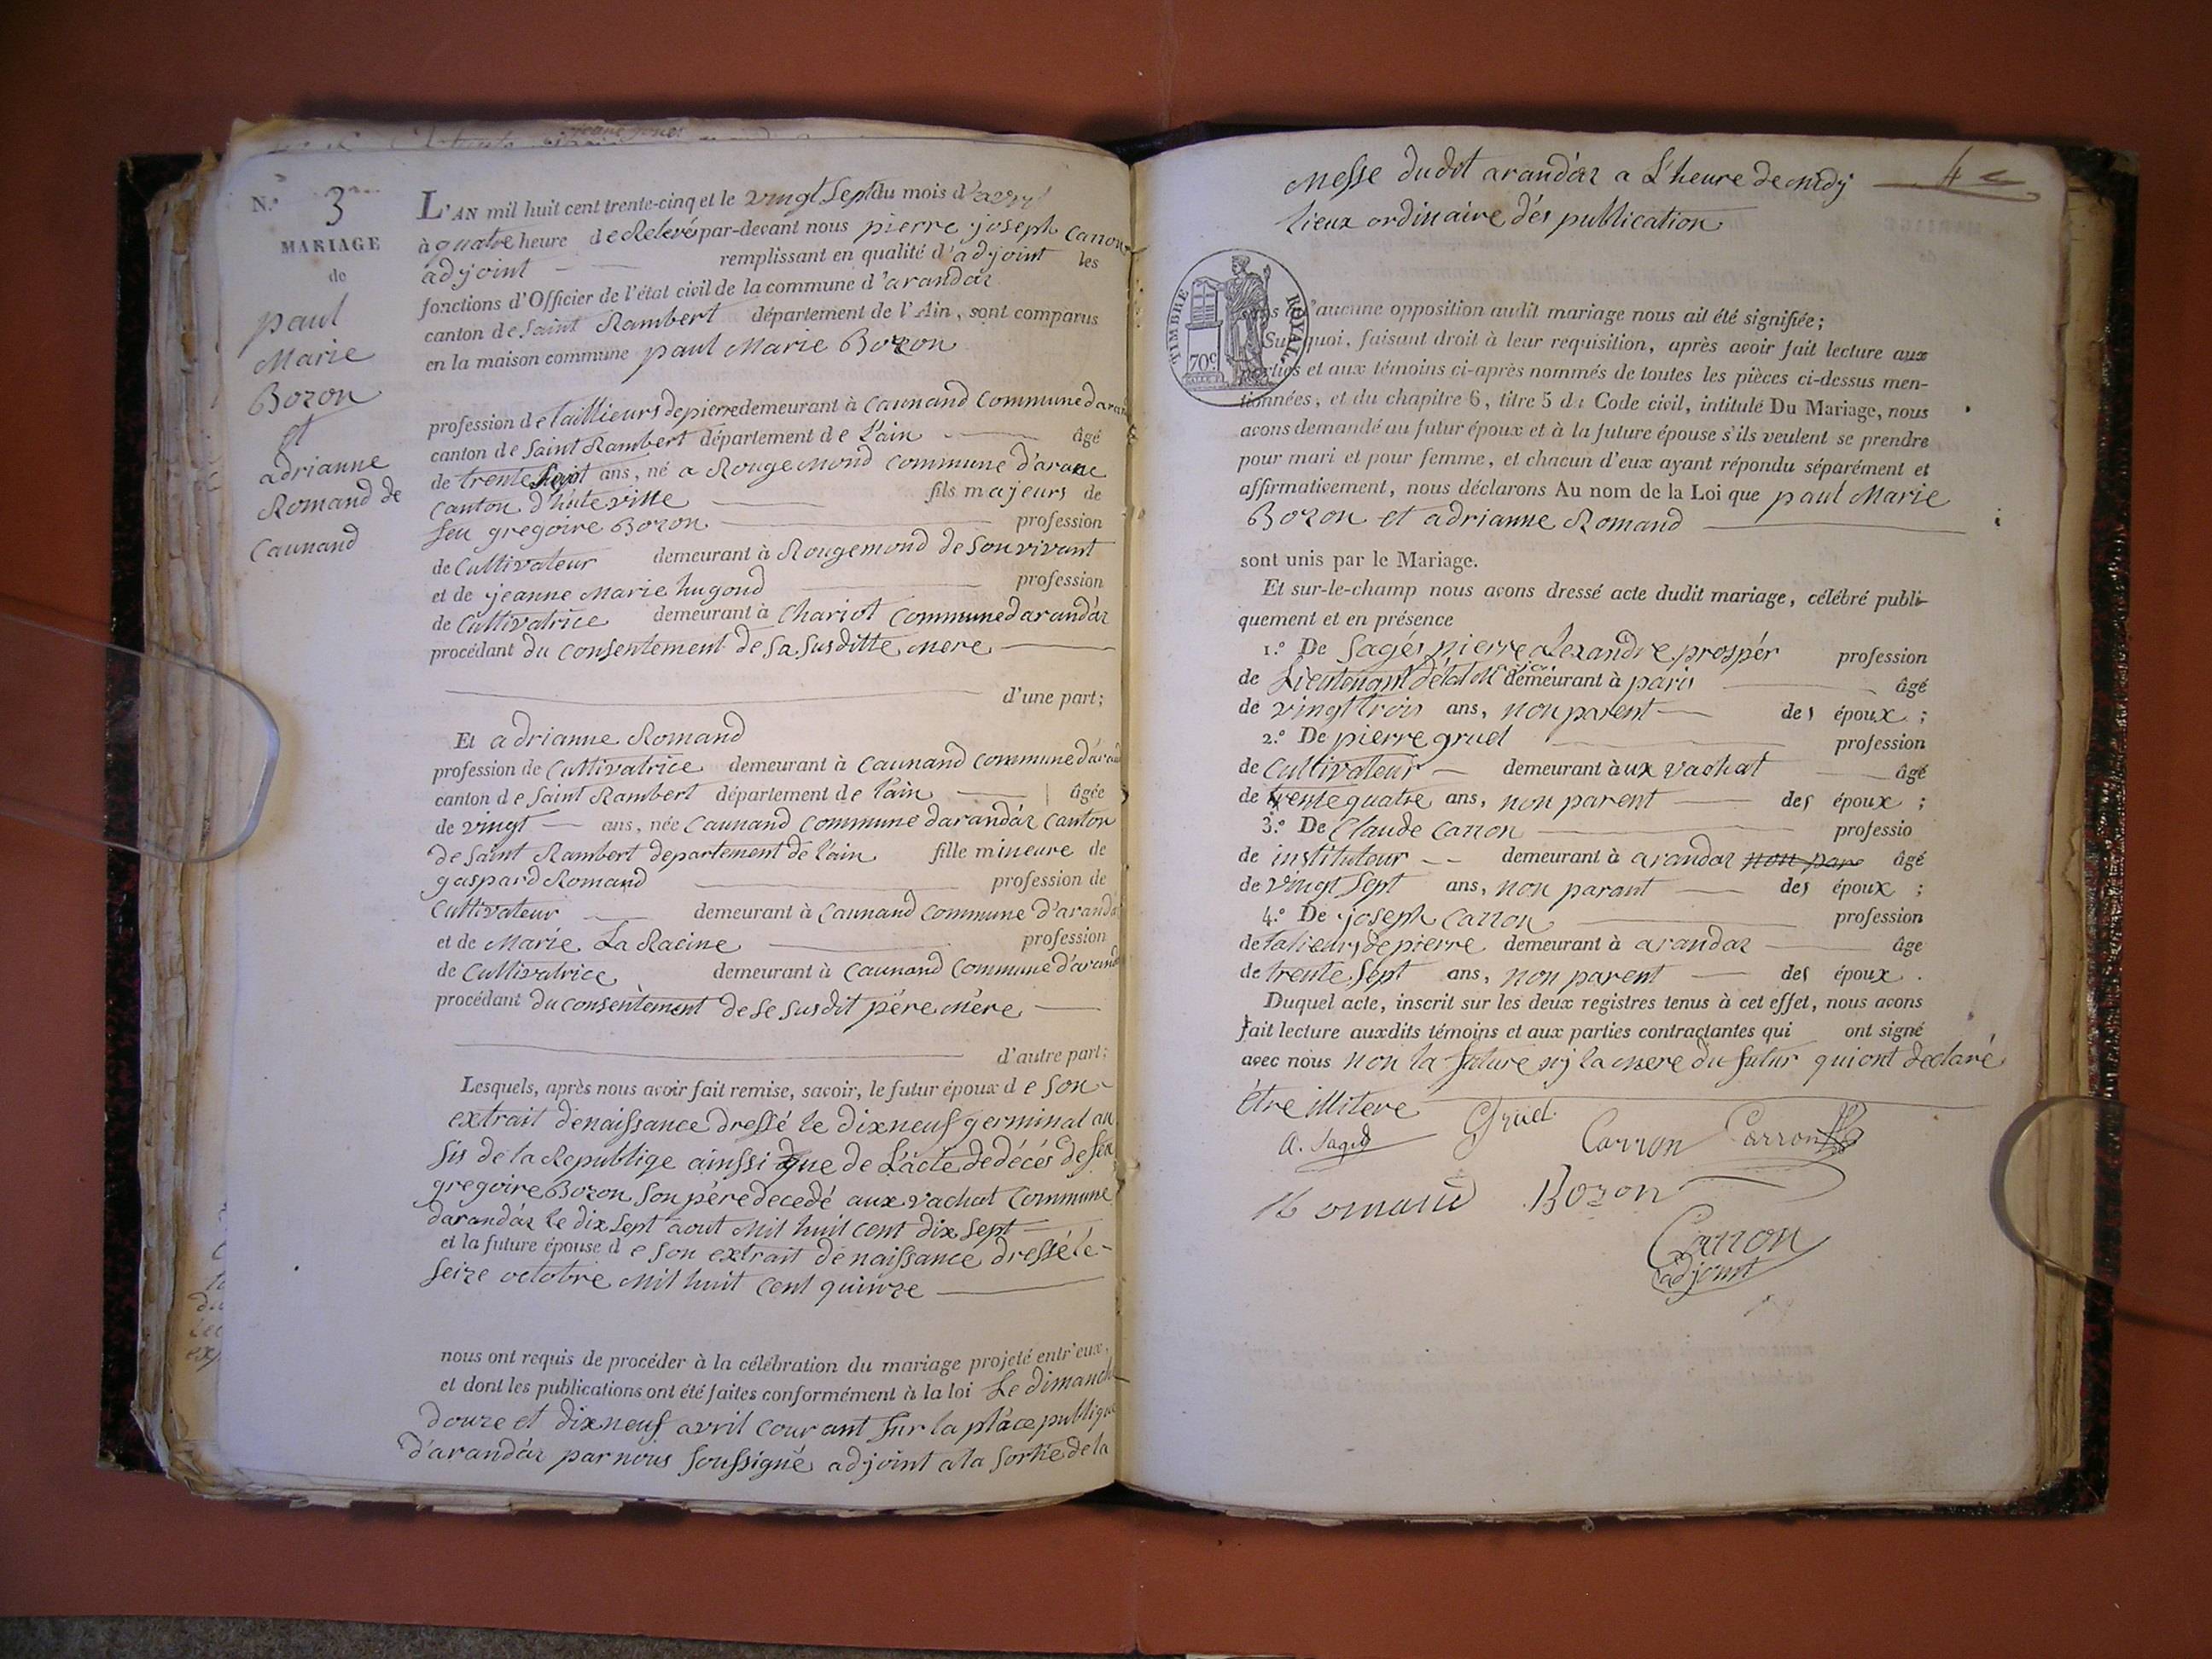 N.º 3
MARIAGE
de
paul
Marie
Bozon
et
adrianne
Romand de
Caunand
L'AN mil huit cent trente-cinq et le vingt Sept du mois d'avril
à quatre heure de Relevé par-devant nous pierre joseph Carron
adjoint remplissant en qualité d'adjoint les
fonctions d'Officier de l'état civil de la commune d'arandaz
canton de Saint Rambert département de l'Ain, sont comparus
en la maison commune paul Marie Bozon
profession de taillieurs de pierre demeurant à Caunand Commune daran
canton de Saint Rambert département de l'ain âgé
de trente Sept ans, né a Rougemond Commune d'arane
Canton d'hauteville fils majeurs de
feu gregoire Bozon profession
de Cultivateur demeurant à Rougemond de Son vivant
et de jeanne Marie hugond profession
de Cultivatrice demeurant à Chariot Commune darandaz
procédant du Consentement de Sa Susditte mere
d'une part;
Et adrianne Romand
profession de Cultivatrice demeurant à Caunand Commune d'arand
canton de Saint Rambert département de l'ain âgée
de vingt ans, née Caunand Commune darandáz Canton
de Saint Rambert departement de l'ain fille mineure de
gaspard Romand profession de
Cultivateur demeurant à Caunand Commune d'aranda
et de Marie La Racine profession
de Cultivatrice demeurant à Caunand Commune d'arand
procédant du consentement de Se Susdit père mère
d'autre part;
Lesquels, après nous avoir fait remise, savoir, le futur époux de Son
extrait de naissance dressé le dixneuf germinal an
Sis de la Republige ainssi que de L'acte de décés de feu
gregoire Bozon Son père decedé aux vachat Commune
darandáz le dix Sept aout Mil huit Cent dix Sept
et la future épouse de Son extrait de naissance dressé le
Seize octobre Mil huit Cent quinze
nous ont requis de procéder à la célébration du mariage projeté entr'eux,
et dont les publications ont été faites conformément à la loi Le dimanche
douze et dixneuf avril Courant Sur la place publique
d'arandáz par nous Soussigné adjoint a la Sortie de la
Messe dudit arandáz a L'heure de Midy 4
lieux ordinaire dés publication
TIMBRE ROYAL
70c
aucune opposition audit mariage nous ait été signifiée;
Sur quoi, faisant droit à leur requisition, après avoir fait lecture aux
parties et aux témoins ci-après nommés de toutes les pièces ci-dessus men-
tionnées, et du chapitre 6, titre 5 du Code civil, intitulé Du Mariage, nous
avons demandé au futur époux et à la future épouse s'ils veulent se prendre
pour mari et pour femme, et chacun d'eux ayant répondu séparément et
affirmativement, nous déclarons Au nom de la Loi que paul Marie
Bozon et adrianne Romand
sont unis par le Mariage.
Et sur-le-champ nous avons dressé acte dudit mariage, célébré publi-
quement et en présence
1.º De Sagés pierre alexandre prospér profession
de Lieutenant d'état M demeurant à paris âgé
de vingt trois ans, non parent des époux ;
2.º De pierre gruel profession
de Cultivateur demeurant à ux vachat âgé
de trente quatre ans, non parent des époux ;
3.º De Claude Carron professio
de instituteur demeurant à arandaz non par âgé
de vingt Sept ans, non parant des époux ;
4.º De joseph Carron profession
de talieurs de pierre demeurant à arandaz âge
de trente Sept ans, non parent des époux.
Duquel acte, inscrit sur les deux registres tenus à cet effet, nous avons
fait lecture auxdits témoins et aux parties contractantes qui ont signé
avec nous non la future nj la mere du futur qui ont déclaré
étre illitere
a. Sagés Gruel Carron Carron
Romand Bozon
Carron
adjoint